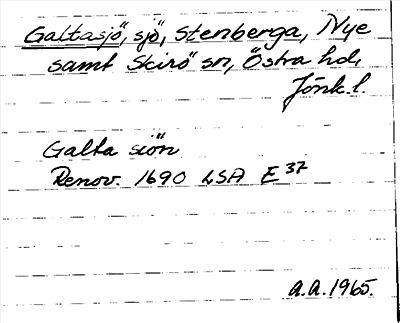 Galtasjö, sjö, Stenberga, Nye
samt Skirö sn, Östra hd,
Jönk.l.
Galta siön
Renov. 1690 LSA E 37
A.A. 1965.